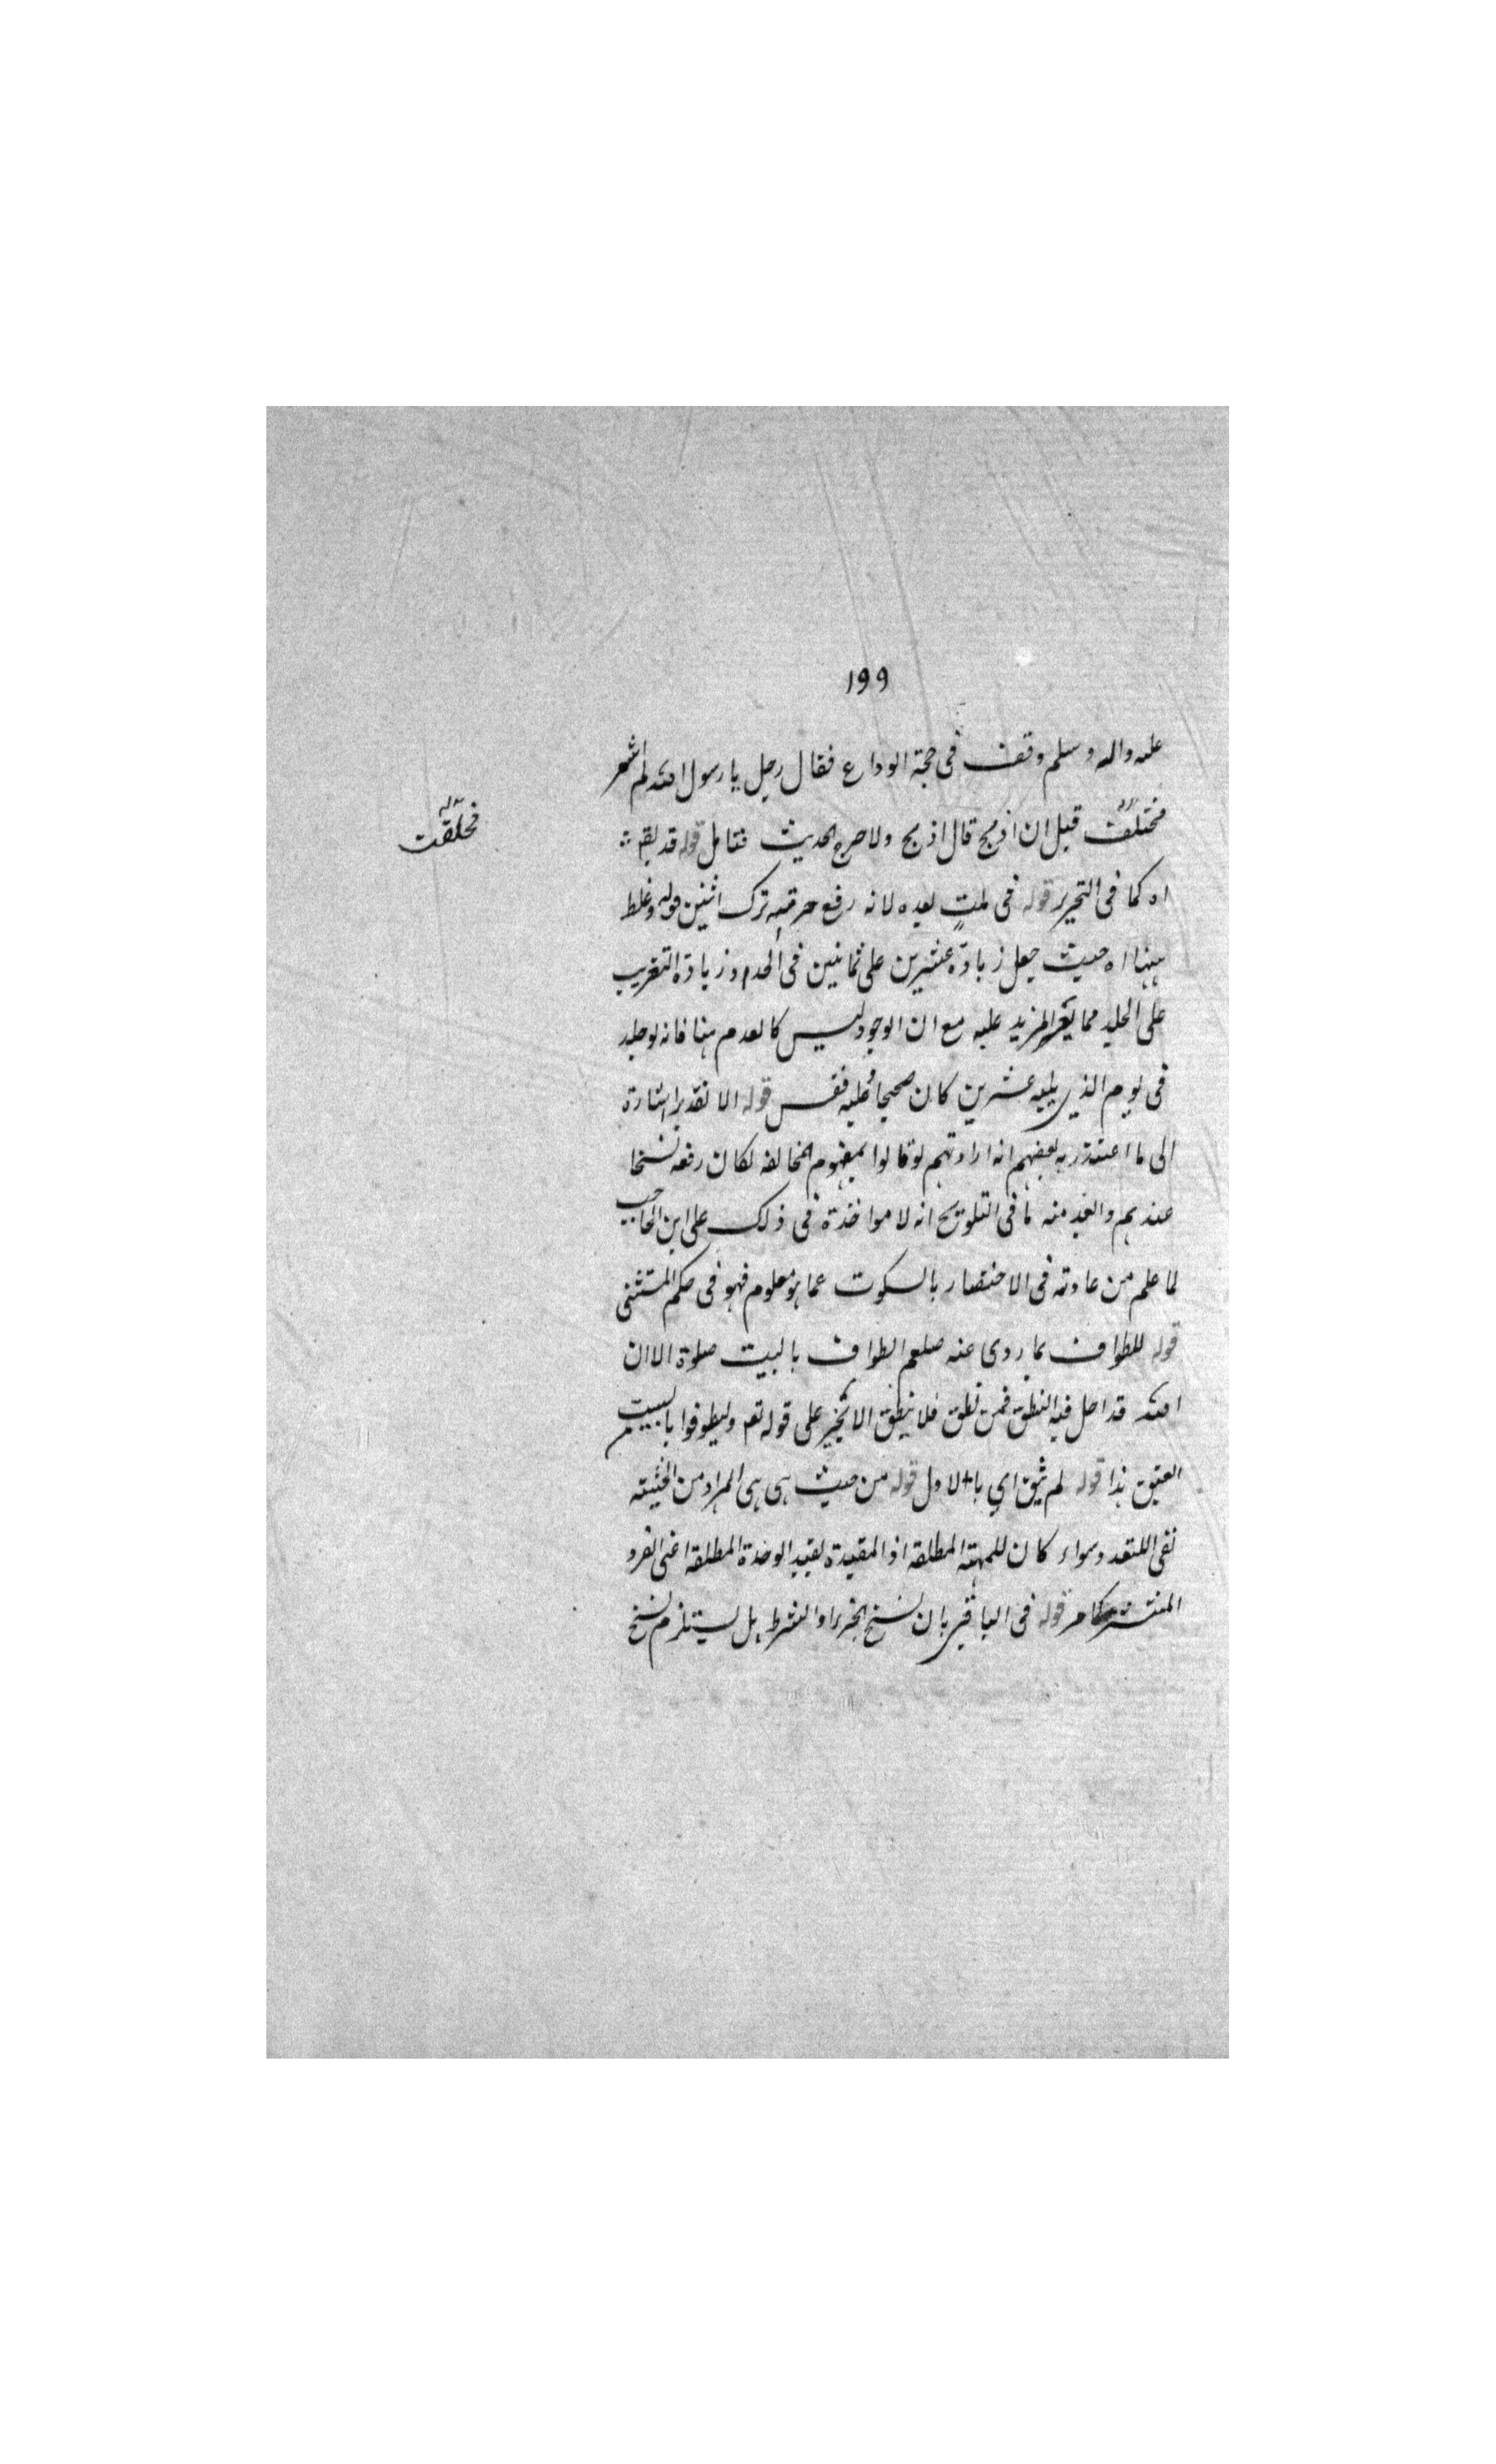 ١٩٩
عليه واله وسلم وقف فى حجة الوداع فقال رجل يا رسول الله لم اشعر
فختلفت قبل ان اذبح قال اذبح ولا حرج الحديث فتامل قوله قد يقم
فحلقت
اه كما فى التحرير قوله فى بعده لانه رفع حرمة ترك اثنين قوله وغلط
ههنا اه حيث جعل زيادة عشرين على ثمانين فى الحد وزيادة التغريب
على الجلد مما يغير المزيد عليه مع ان الوجود ليس كالعدم هنا فانه لو جلد
فى يوم الذي يليه عشرين كان صحيحا فعليه فقس قوله الا تقدير اشارة
الى ما اعتذر به بعضهم انه اراد تهم لو قالوا بمفهوم المخالفه لكان رفعه نسخا
عندهم والغد منه ما فى التلويح انه لا مواخذة فى ذلك على ابن الحاجب
لما علم من عادته فى الاختصار بالسكوت عما هو معلوم فهو فى حكم المستثنى
قوله للطواف بما روى عنه صلعم الطواف بالبيت صلوة الا ان
الله قد احل فيه النطق فمن نطق فلا ينطق الا بخير على قوله تعم وليطوفوا بالبيت
العتيق هذا قوله لم يثق اي بالاول قوله من حيث هى هى المراد من الحيثية
نفى التعدد سواء كان للمهية المطلقه او المقيدة بقيد الوحدة المطلقه اعنى الفرد
المنتشر كما مر قوله فى الباقى بان نسخ الجزء او الشرط هل يستلزم نسخ